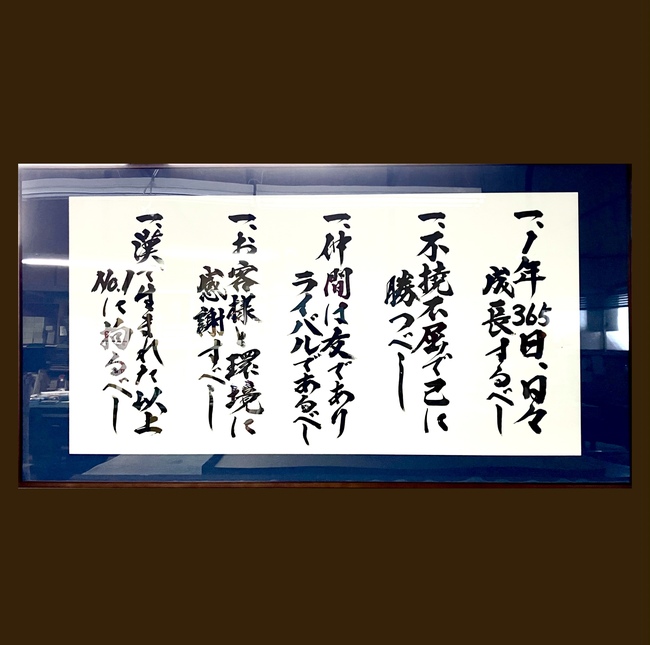 一、1年365日、日々
成長するべし
一、不撓不屈で己に
勝つべし
一、仲間は友であり
ライバルであるべし
一、お客様と環境に
感謝すべし
一、漢で生まれた以上
No.1に拘るべし